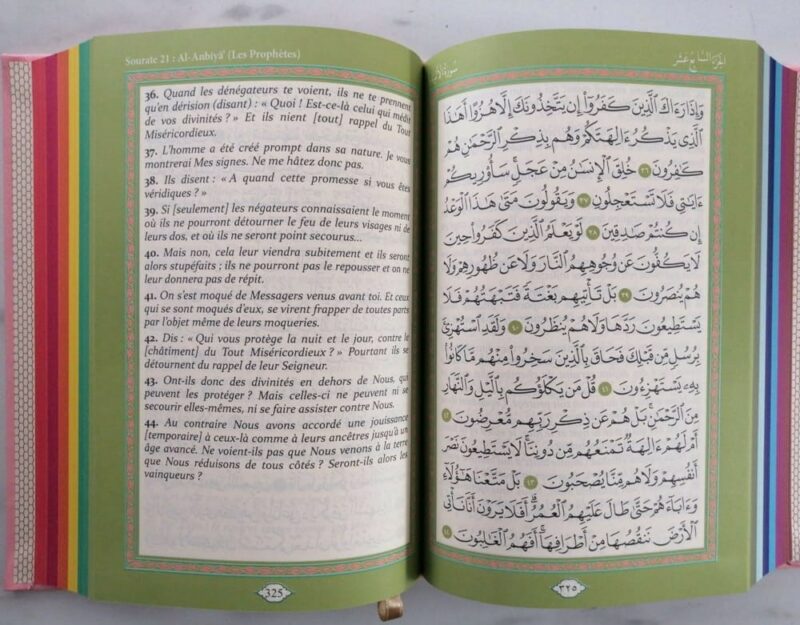 Sourate 21 : Al-Anbiyâ' (Les Prophètes)
36. Quand les dénégateurs te voient, ils ne te prennent
qu'en dérision (disant) : « Quoi ! Est-ce-là celui qui médit
de vos divinités ? » Et ils nient [tout] rappel du Tout
Miséricordieux.
37. L'homme a été créé prompt dans sa nature. Je vous
montrerai Mes signes. Ne me hâtez donc pas.
38. Ils disent : « A quand cette promesse si vous êtes
véridiques ? »
39. Si [seulement] les négateurs connaissaient le moment
où ils ne pourront détourner le feu de leurs visages ni de
leurs dos, et où ils ne seront point secourus...
40. Mais non, cela leur viendra subitement et ils seront
alors stupéfaits ; ils ne pourront pas le repousser et on ne
leur donnera pas de répit.
41. On s'est moqué de Messagers venus avant toi. Et ceux
qui se sont moqués d'eux, se virent frapper de toutes parts
par l'objet même de leurs moqueries.
42. Dis : « Qui vous protège la nuit et le jour, contre le
[châtiment] du Tout Miséricordieux ? » Pourtant ils se
détournent du rappel de leur Seigneur.
43. Ont-ils donc des divinités en dehors de Nous, qui
peuvent les protéger ? Mais celles-ci ne peuvent ni se
secourir elles-mêmes, ni se faire assister contre Nous.
44. Au contraire Nous avons accordé une jouissance
[temporaire] à ceux-là comme à leurs ancêtres jusqu'à un
âge avancé. Ne voient-ils pas que Nous venons à la terre
que Nous réduisons de tous côtés ? Seront-ils alors les
vainqueurs ?
325
الجزء السابع عشر
وَإِذَا رَءَاكَ ٱلَّذِينَ كَفَرُوٓا۟ إِن يَتَّخِذُونَكَ إِلَّا هُزُوًا أَهَٰذَا
ٱلَّذِى يَذْكُرُ ءَالِهَتَكُمْ وَهُم بِذِكْرِ ٱلرَّحْمَٰنِ هُمْ
كَٰفِرُونَ ٣٦ خُلِقَ ٱلْإِنسَٰنُ مِنْ عَجَلٍ سَأُو۟رِيكُمْ
ءَايَٰتِى فَلَا تَسْتَعْجِلُونِ ٣٧ وَيَقُولُونَ مَتَىٰ هَٰذَا ٱلْوَعْدُ
إِن كُنتُمْ صَٰدِقِينَ ٣٨ لَوْ يَعْلَمُ ٱلَّذِينَ كَفَرُوا۟ حِينَ
لَا يَكُفُّونَ عَن وُجُوهِهِمُ ٱلنَّارَ وَلَا عَن ظُهُورِهِمْ وَلَا
هُمْ يُنصَرُونَ ٣٩ بَلْ تَأْتِيهِم بَغْتَةً فَتَبْهَتُهُمْ فَلَا
يَسْتَطِيعُونَ رَدَّهَا وَلَا هُمْ يُنظَرُونَ ٤٠ وَلَقَدِ ٱسْتُهْزِئَ
بِرُسُلٍ مِّن قَبْلِكَ فَحَاقَ بِٱلَّذِينَ سَخِرُوا۟ مِنْهُم مَّا كَانُوا۟
بِهِۦ يَسْتَهْزِءُونَ ٤١ قُلْ مَن يَكْلَؤُكُم بِٱلَّيْلِ وَٱلنَّهَارِ
مِنَ ٱلرَّحْمَٰنِ بَلْ هُمْ عَن ذِكْرِ رَبِّهِم مُّعْرِضُونَ ٤٢
أَمْ لَهُمْ ءَالِهَةٌ تَمْنَعُهُم مِّن دُونِنَا لَا يَسْتَطِيعُونَ نَصْرَ
أَنفُسِهِمْ وَلَا هُم مِّنَّا يُصْحَبُونَ ٤٣ بَلْ مَتَّعْنَا هَٰٓؤُلَآءِ
وَءَابَآءَهُمْ حَتَّىٰ طَالَ عَلَيْهِمُ ٱلْعُمُرُ أَفَلَا يَرَوْنَ أَنَّا نَأْتِى
ٱلْأَرْضَ نَنقُصُهَا مِنْ أَطْرَافِهَآ أَفَهُمُ ٱلْغَٰلِبُونَ ٤٤
٣٢٥